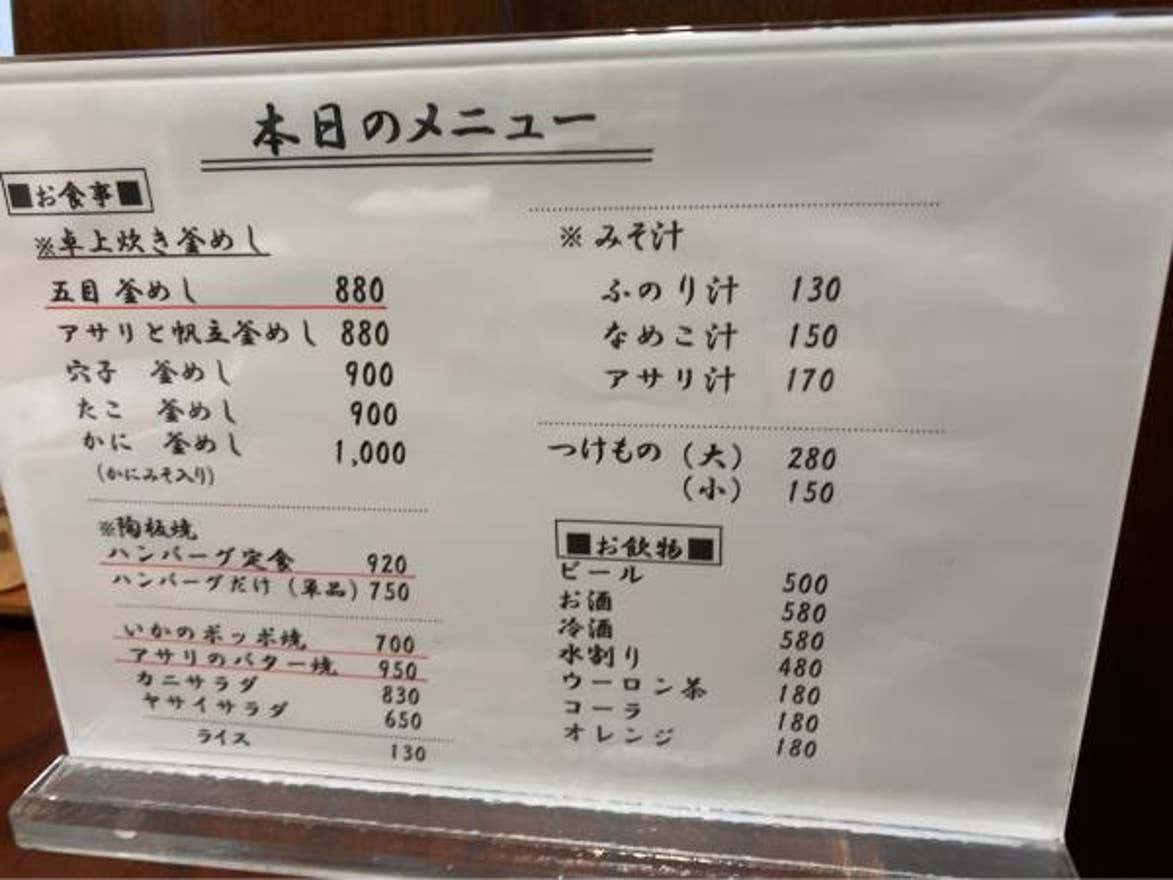 本日のメニュー
■お食事■
※卓上炊き釜めし
五目 釜めし 880
アサリと帆立釜めし 880
穴子 釜めし 900
たこ 釜めし 900
かに 釜めし 1,000
(かにみそ入り)
※陶板焼
ハンバーグ定食 920
ハンバーグだけ (単品) 750
いかのポッポ焼 700
アサリのバター焼 950
カニサラダ 830
ヤサイサラダ 650
ライス 130
※ みそ汁
ふのり汁 130
なめこ汁 150
アサリ汁 170
つけもの (大) 280
(小) 150
■お飲物■
ビール 500
お酒 580
冷酒 580
水割り 480
ウーロン茶 180
コーラ 180
オレンジ 180